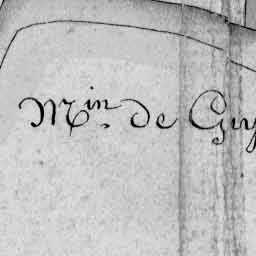 Min. de Guy